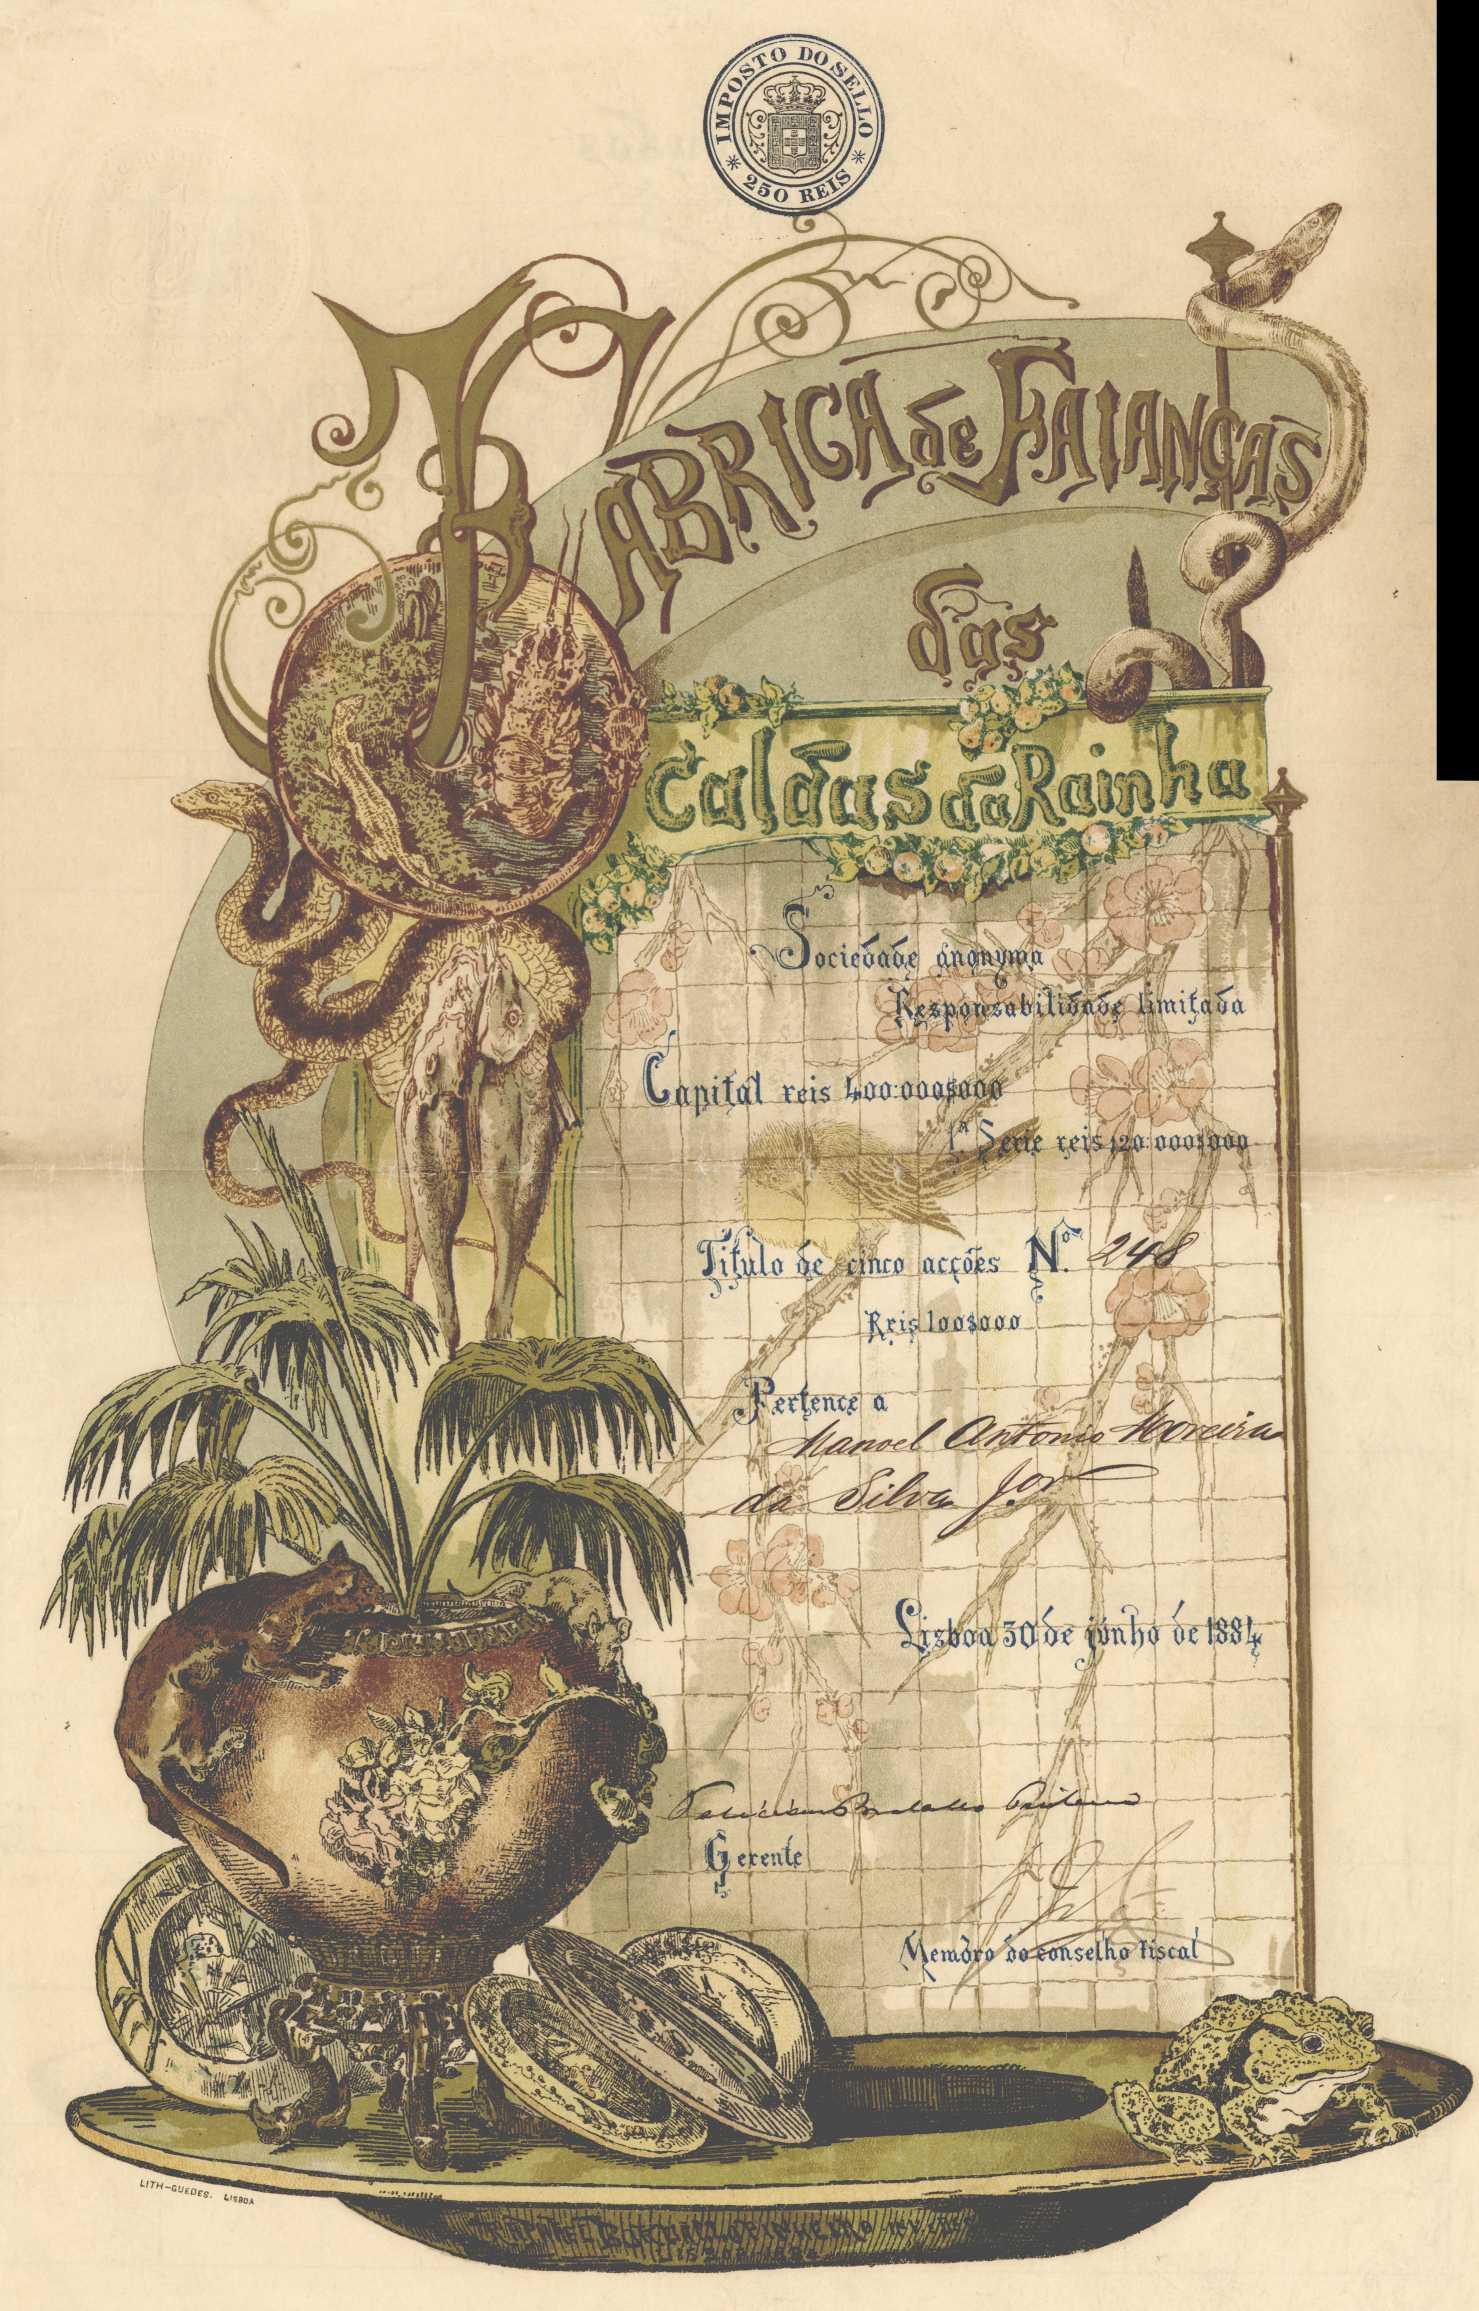 IMPOSTO DO SELLO
* 250 REIS *
FABRICA de FAIANÇAS
das
Caldas da Rainha
Sociedade anonyma
Responsabilidade limitada
Capital reis 400:000$000
1ª Serie reis 120:000$000
Titulo de cinco acções Nº. 248
Reis 100$000
Pertence a
Manoel Antonio Moreira
da Silva Jor
Lisboa 30 de junho de 1884
Gerente
Membro do conselho fiscal
LITH-GUEDES. LISBOA
RAPHAEL BORDALLO PINHEIRO